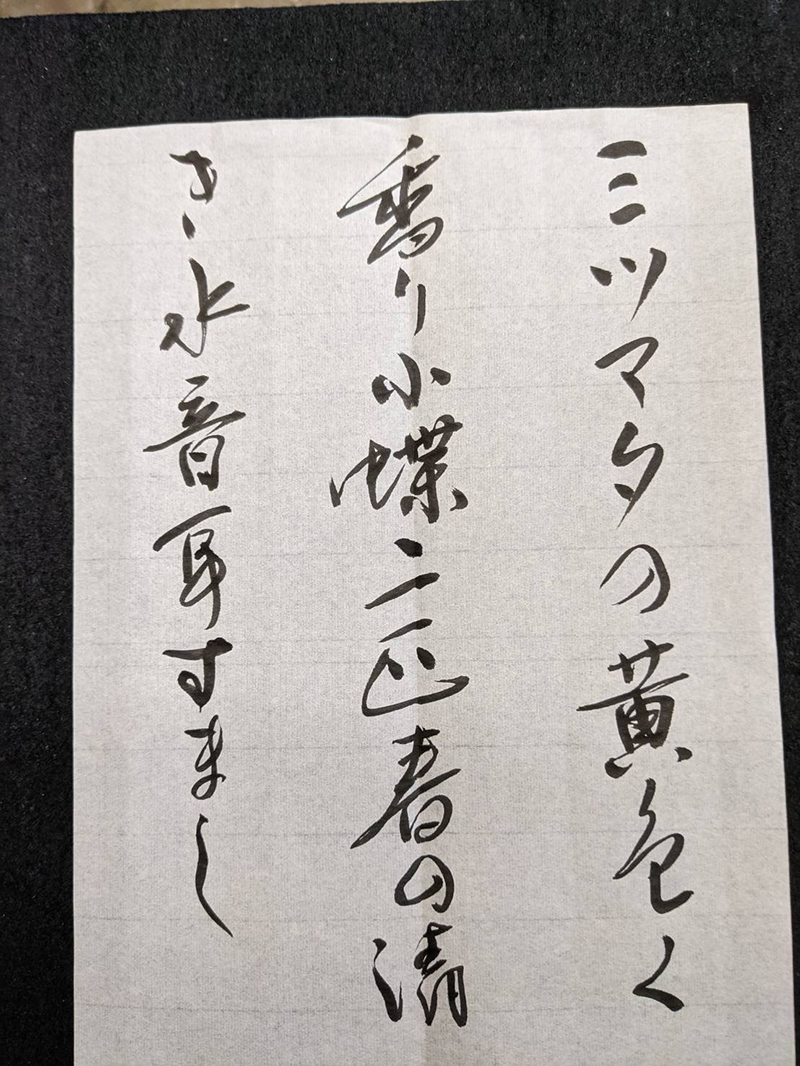 ミツマタの黄色く
香り小蝶二匹春の清
き水音耳すまし